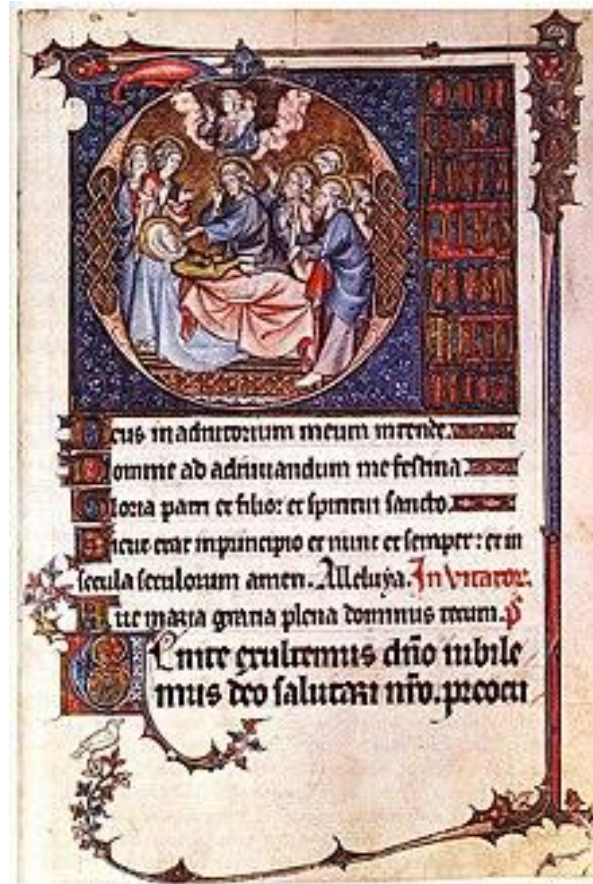 Deus in adiutorium meum intende.
Domine ad adiuuandum me festina
Gloria patri et filio: et spiritui sancto.
Sicut erat in principio et nunc et semper: et in
secula seculorum amen. Alleluya. Invitator.
Aue maria gratia plena dominus tecum. ps
Uenite exultemus dño iubile
mus deo salutari nr̃o. preocu